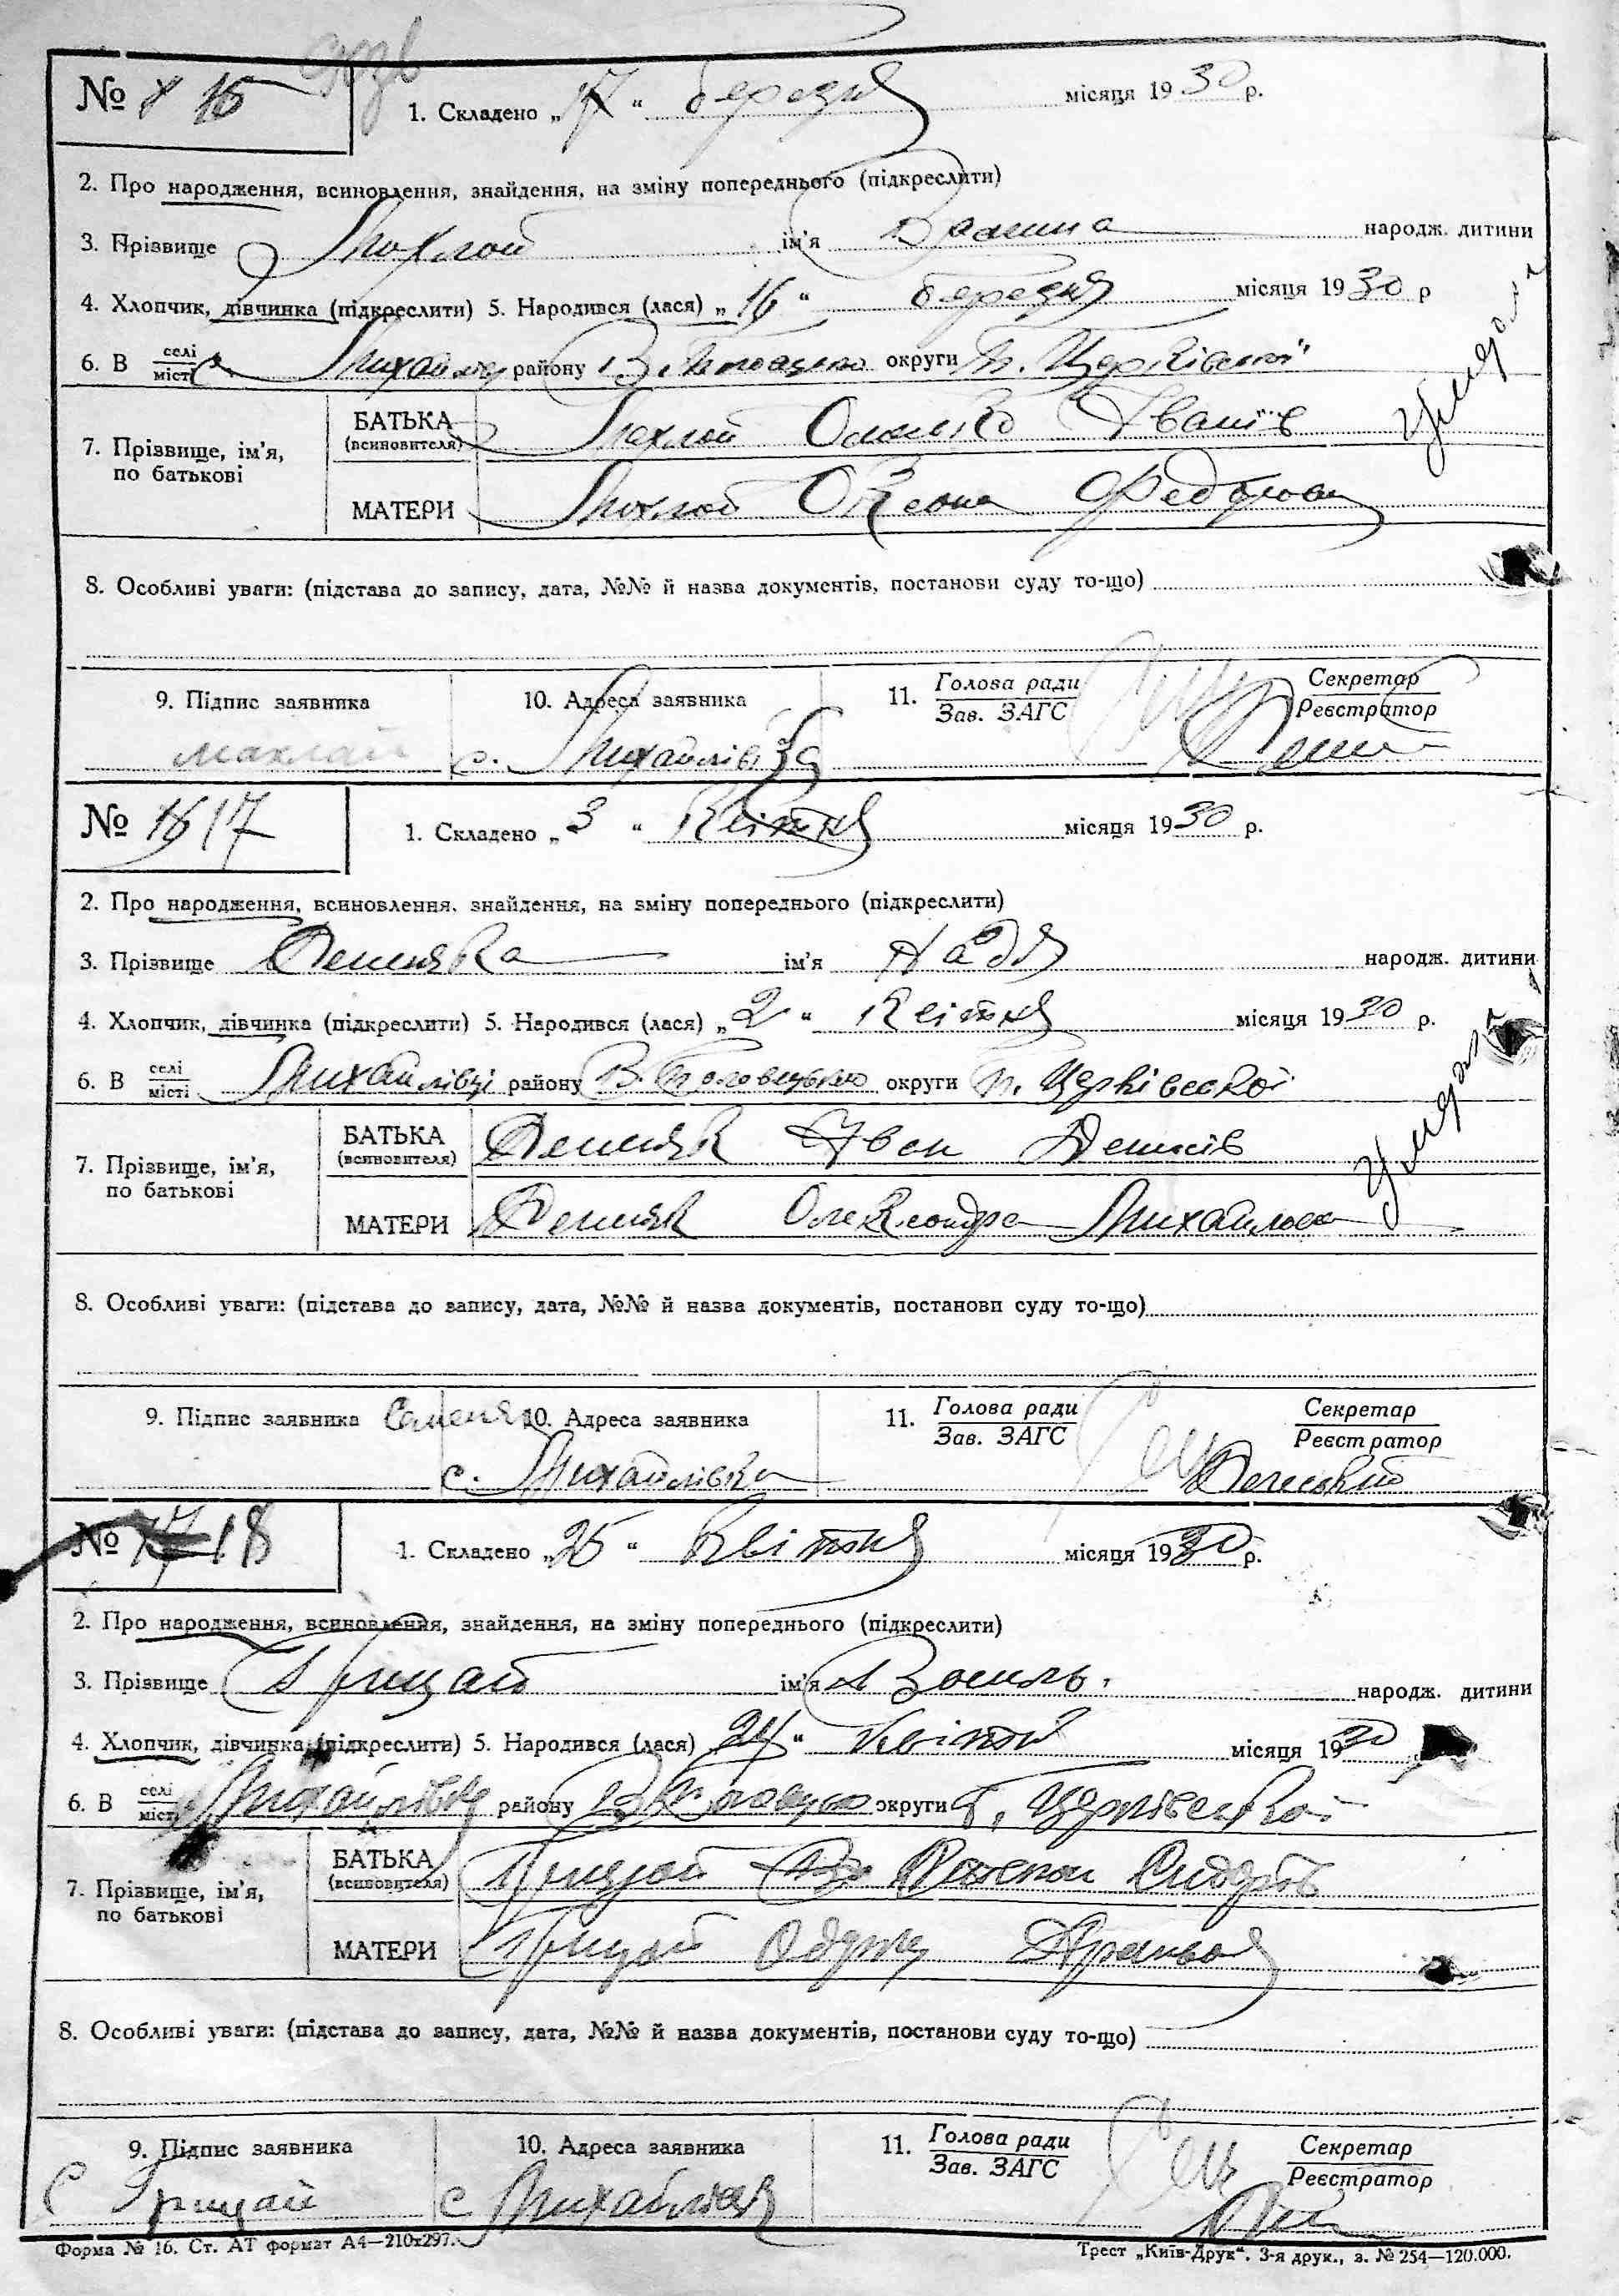 № 16
1. Складено „17“ березня місяця 1930 р.
2. Про народження, всиновлення, знайдення, на зміну попереднього (підкреслити)
3. Прізвище Махлай ім'я народж. дитини
4. Хлопчик, дівчинка (підкреслити) 5. Народився (лася) „16“ березня місяця 1930 р
6. В селі/місті району округи Б. Церківської
7. Прізвище, ім'я, по батькові
БАТЬКА (всиновителя) Махлай Іванів
МАТЕРИ Махлай Оксана Федорова
Умерла
8. Особливі уваги: (підстава до запису, дата, №№ й назва документів, постанови суду то-що)
9. Підпис заявника
10. Адреса заявника
11. Голова ради/Зав. ЗАГС
Секретар/Реєстратор
махлай
с. Михайлівка
№ 17
1. Складено „3“ Квітня місяця 1930 р.
2. Про народження, всиновлення, знайдення, на зміну попереднього (підкреслити)
3. Прізвище ім'я Надя народж. дитини
4. Хлопчик, дівчинка (підкреслити) 5. Народився (лася) „2“ Квітня місяця 1930 р.
6. В селі/місті Михайлівці району В. Половецько округи Б. Церківської
7. Прізвище, ім'я, по батькові
БАТЬКА (всиновителя) Іван
МАТЕРИ Олександра Михайлова
Умерла
8. Особливі уваги: (підстава до запису, дата, №№ й назва документів, постанови суду то-що)
9. Підпис заявника
10. Адреса заявника
11. Голова ради/Зав. ЗАГС
Секретар/Реєстратор
с. Михайлівка
№ 18
1. Складено „25“ Квітня місяця 1930 р.
2. Про народження, всиновлення, знайдення, на зміну попереднього (підкреслити)
3. Прізвище Грицай ім'я Василь народж. дитини
4. Хлопчик, дівчинка (підкреслити) 5. Народився (лася) „24“ Квітня місяця 1930
6. В селі/місті району округи Б. Церківської
7. Прізвище, ім'я, по батькові
БАТЬКА (всиновителя) Грицай Сидорів
МАТЕРИ Грицай
8. Особливі уваги: (підстава до запису, дата, №№ й назва документів, постанови суду то-що)
9. Підпис заявника
10. Адреса заявника
11. Голова ради/Зав. ЗАГС
Секретар/Реєстратор
С Грицай
с Михайлівка
Форма № 16. Ст. АТ формат А4—210х297.
Трест „Київ-Друк“. 3-я друк., з. № 254—120.000.